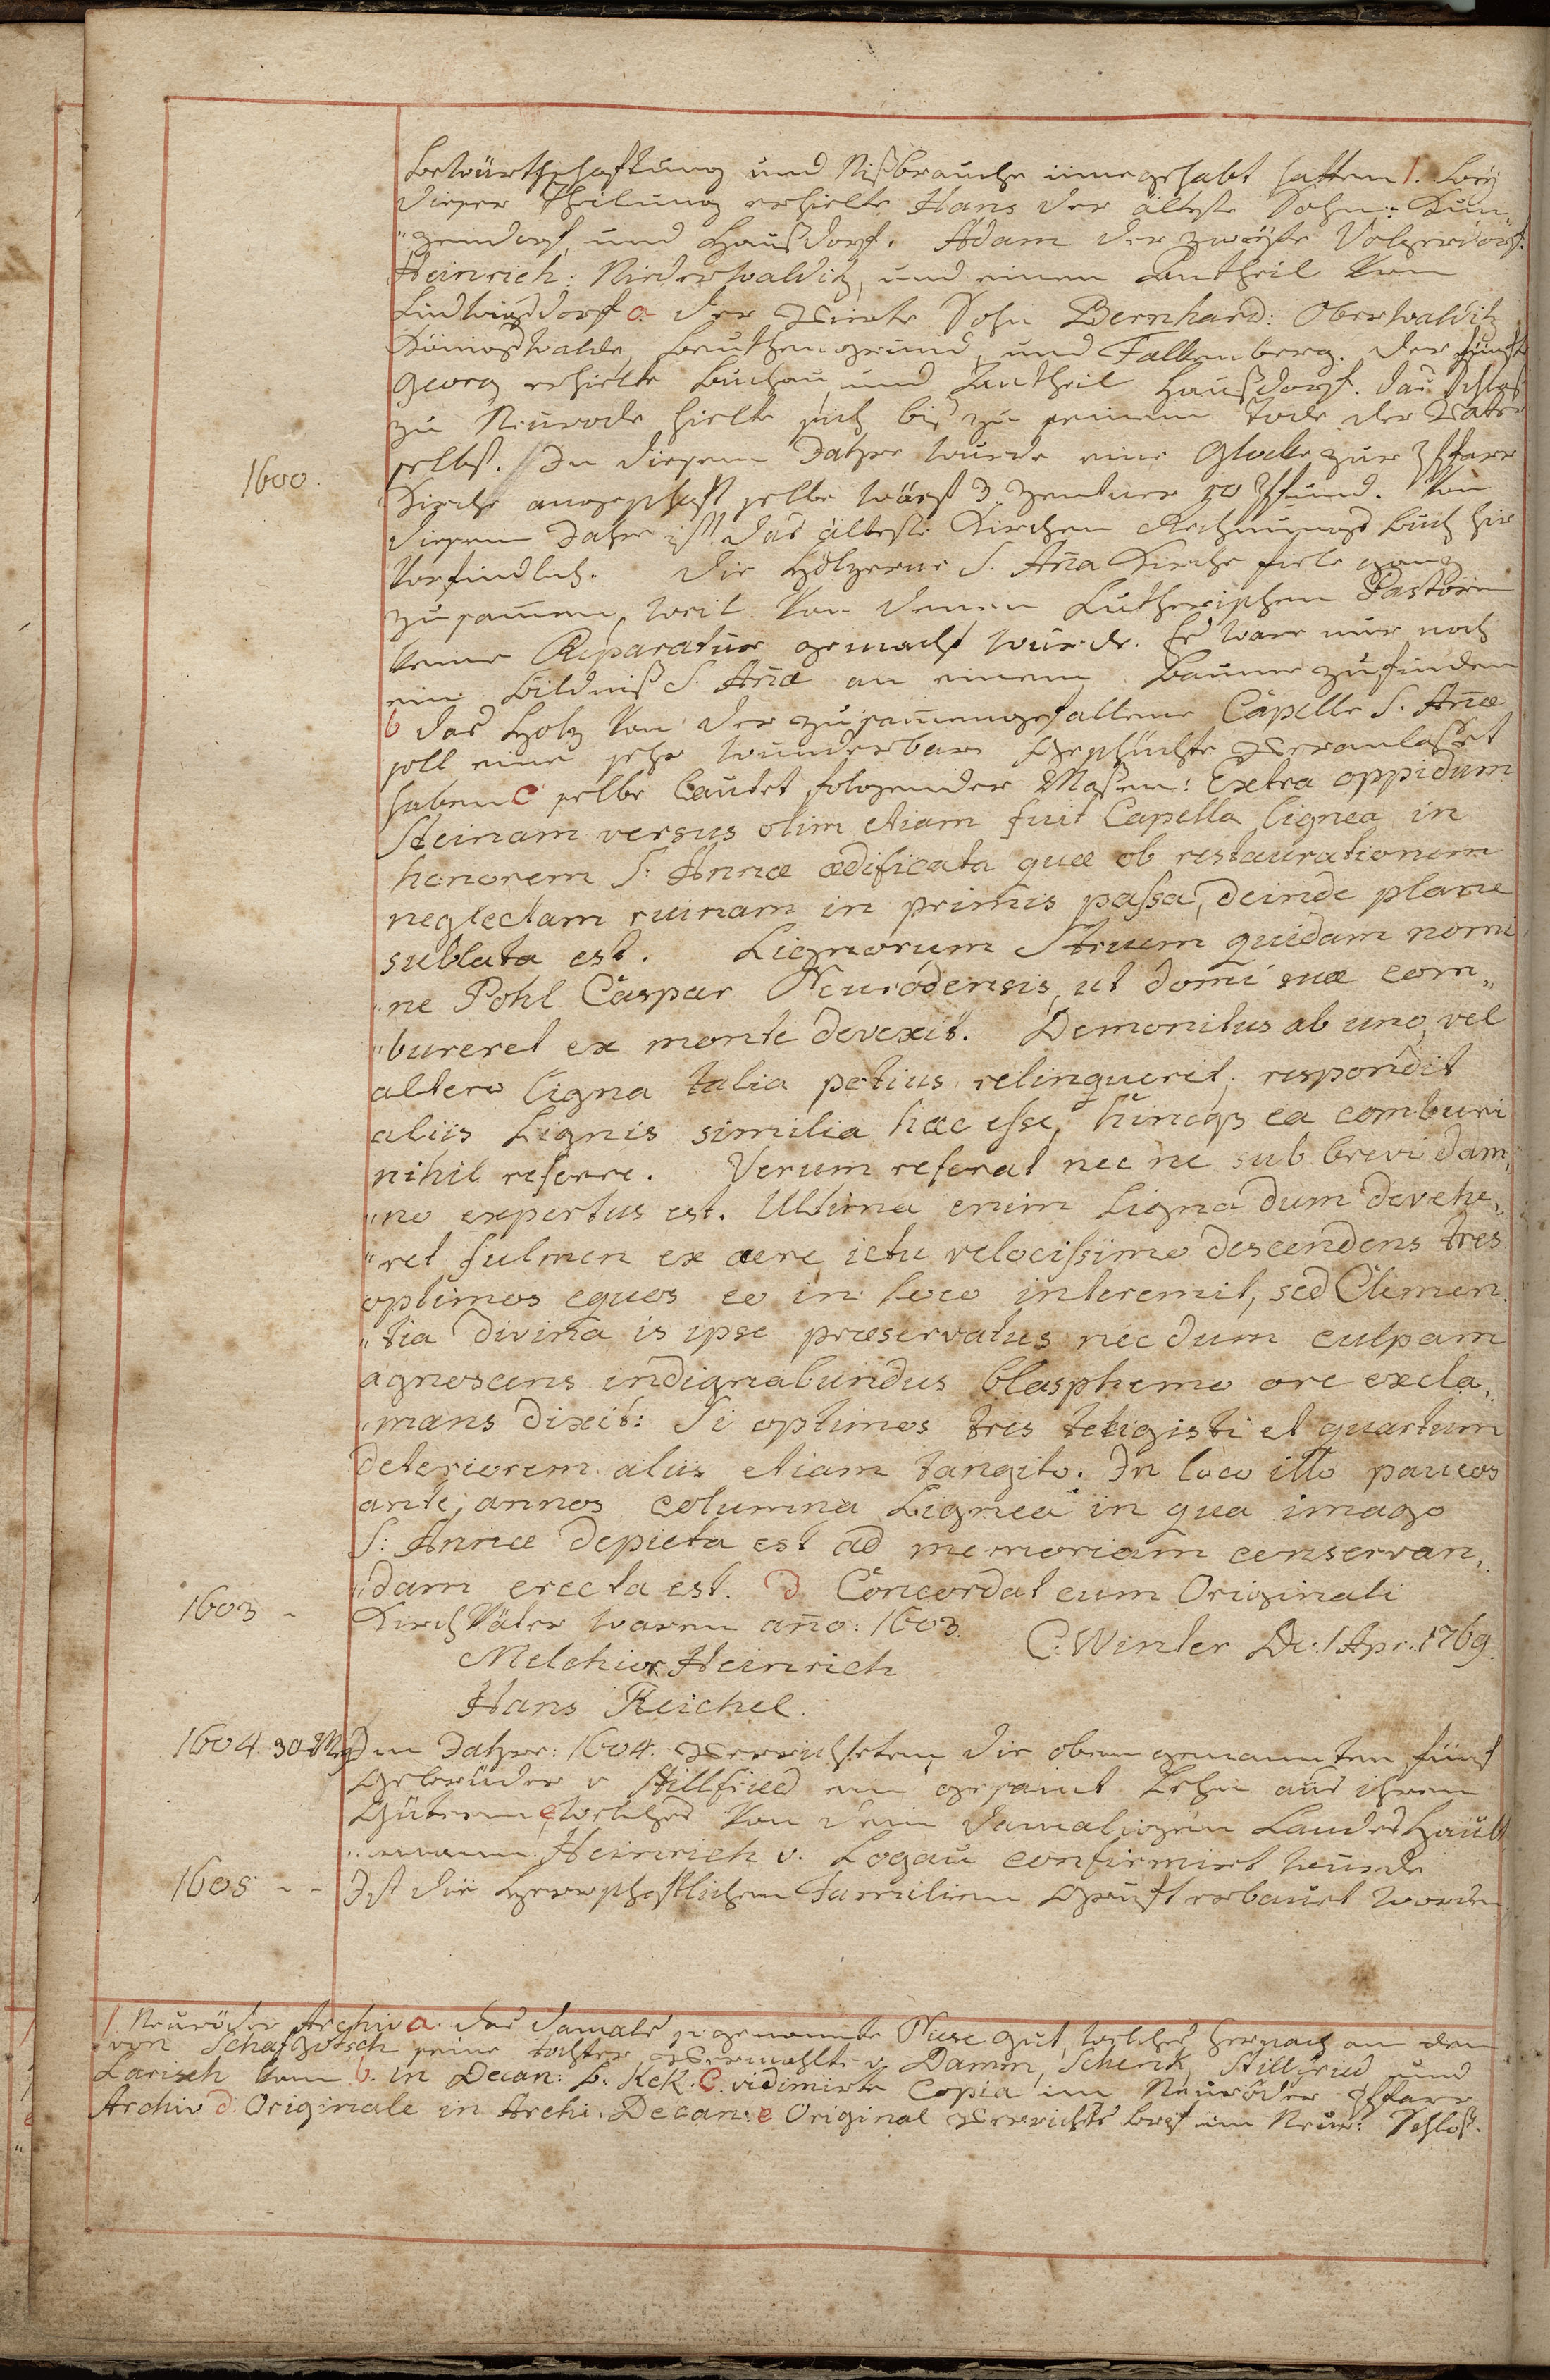 Bewürthschaftung und Nißbrauche innegehabt hatten 1. Bey
dieser Theilung erhielte Hans der älteste Sohn: Kun„
„zendorf, und Haußdorf. Adam der zweyte Volpersdorf.
Heinrich: Niederwalditz, und einen Antheil von
Ludwigsdorf a der vierte Sohn Bernhard: Oberwalditz
Königswalde, Beuthengrund, und Falkenberg. der fünfte
Georg erhielte Buchau, und Antheil Haußdorf. das Schloß
zu Neurode hielte sich bis zu seinem Tode der Vater
selbst. // In diesem Jahre wurde eine Glocke zur Pfarr
1600.
Kirche angeschaft selbe wäget 3 Zentner 50 Pfund. Von
diesem Jahre ist das älteste Kirchen Rechnungs Buch hir
Vorfindlich. Die Hölzerne S. Ana Kirche fiele ganz
zusamen, weil von denen Lutherischen Pastorn
keine Reparatur gemacht wurde. Es ware nur noch
ein Bildniß S. Anæ an einem Baume zufinden
b das Holz von der zusamengefallene Capelle S. Anæ
soll eine sehr wunderbare Geschichte Veranlaßet
haben c selbe lautet folgender Maßen: Extra oppidum
Steinam versus olim etiam fuit Capella lignea in
honorem S: Annæ ædificata quæ ob restaurationem
neglectam ruinam in primis passa, deinde plane
sublata est. Lignorum Struem quidam nomi
„ne Pohl Caspar Neurodensis, ut domi suæ com„
„bureret ex monte devexit. Demonitus ab uno, vel
altero ligna talia potius relinquerit, respondit
aliis Lignis similia hæc esse, hincq3 ea comburi
nihil referre. Verum referat nec ne sub brevi dam„
„no expertus est. Ultima enim Ligna dum devehe„
„ret fulmen ex aere ictu velocissimo descendens tres
optimos equos eo in loco interemit, sed Clemen„
„tia divina is ipse præservatus nec dum culpam
agnoscens indignabundus blasphemo ore excla„
„mans dixit: Si optimos tres tetigisti et quartum
deteriorem aliis etiam tangito. In loco illo paucos
ante annos columna Lignea in qua imago
S: Annæ depicta est ad memoriam conservan„
„dam erecta est. d Concordat cum Originali
1603 -
Kirch Väter waren ano: 1603. C. Winter De: 1 Apr. 1769.
Melchior Heinrich
Hans Reichel.
1604. 30
Im Jahre: 1604. Verrichteten die oben genannten fünf
Gebrüder v Stillfried ein gesamt Lehn aus ihren
Güttern e, welches von dem damaligen Landeshaubt
„mann Heinrich v. Logau confirmirt wurde
1605 - -
Ist die Herrschaftlichen Familien Gruft erbauet worden
1 Neuröder Archiv a. das damals sogenannte Niese gut, welches hernach an den
von Schafgotsch seine tochter Vermahlte v Damm, Schenk, Stillfried und
Larisch kam b. in Decan: B. Kek. c. vidimirte Copia im Neuröder Pfarr
Archiv d Originale in Archi. Decan: e Original Verrichts Brif im Neur: Schloß.